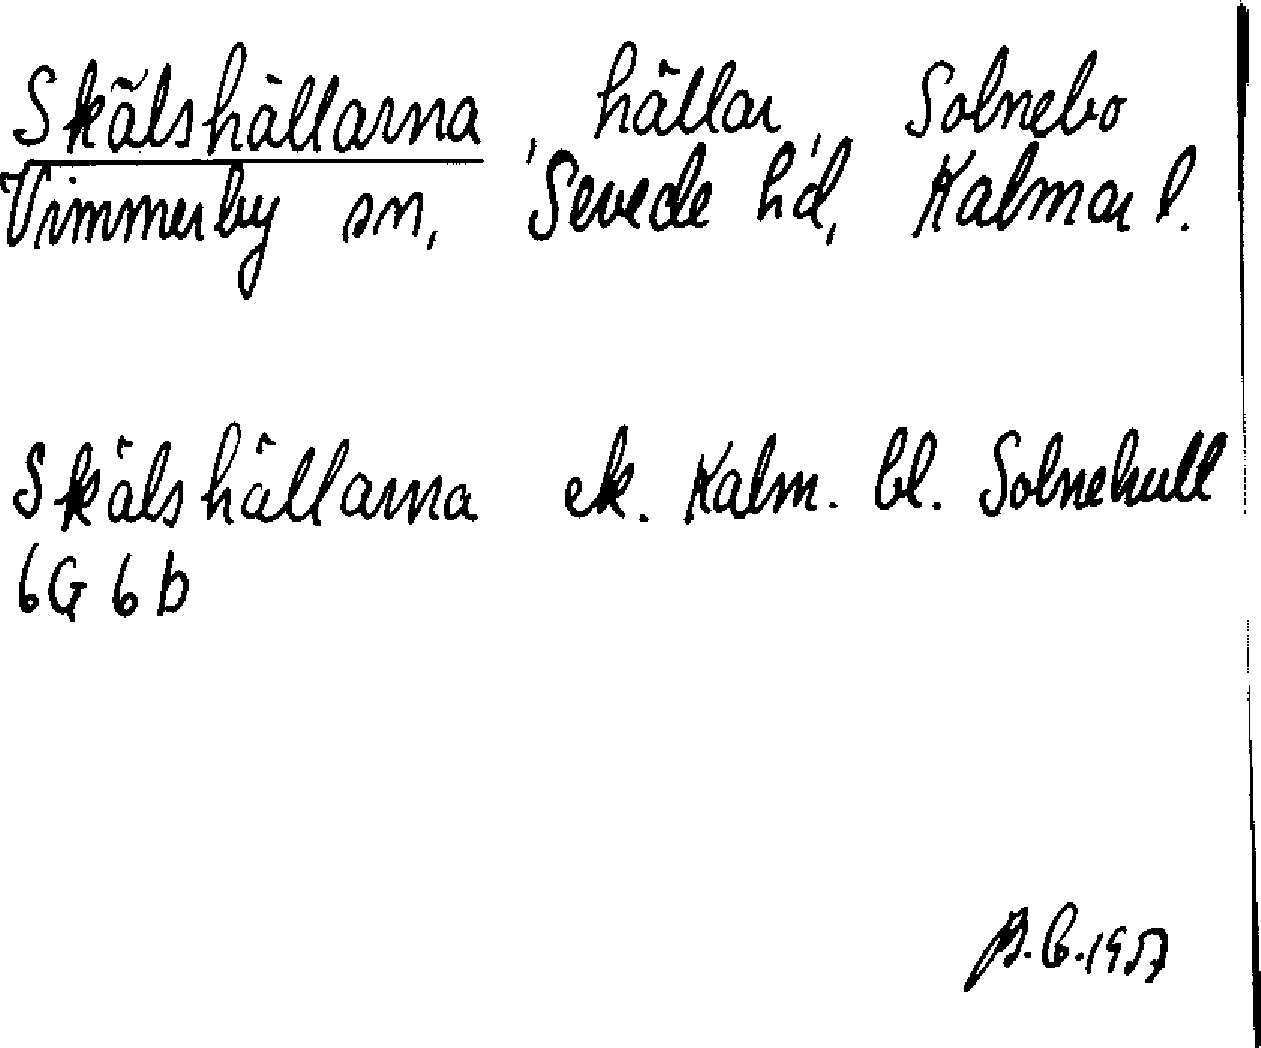 Skälshällarna, hällar, Solnebo
Vimmerby sn, Sevede hd, Kalmar l.
Skälshällarna ek. Kalm. bl. Solnehult
6G 6b
B.B. 1957